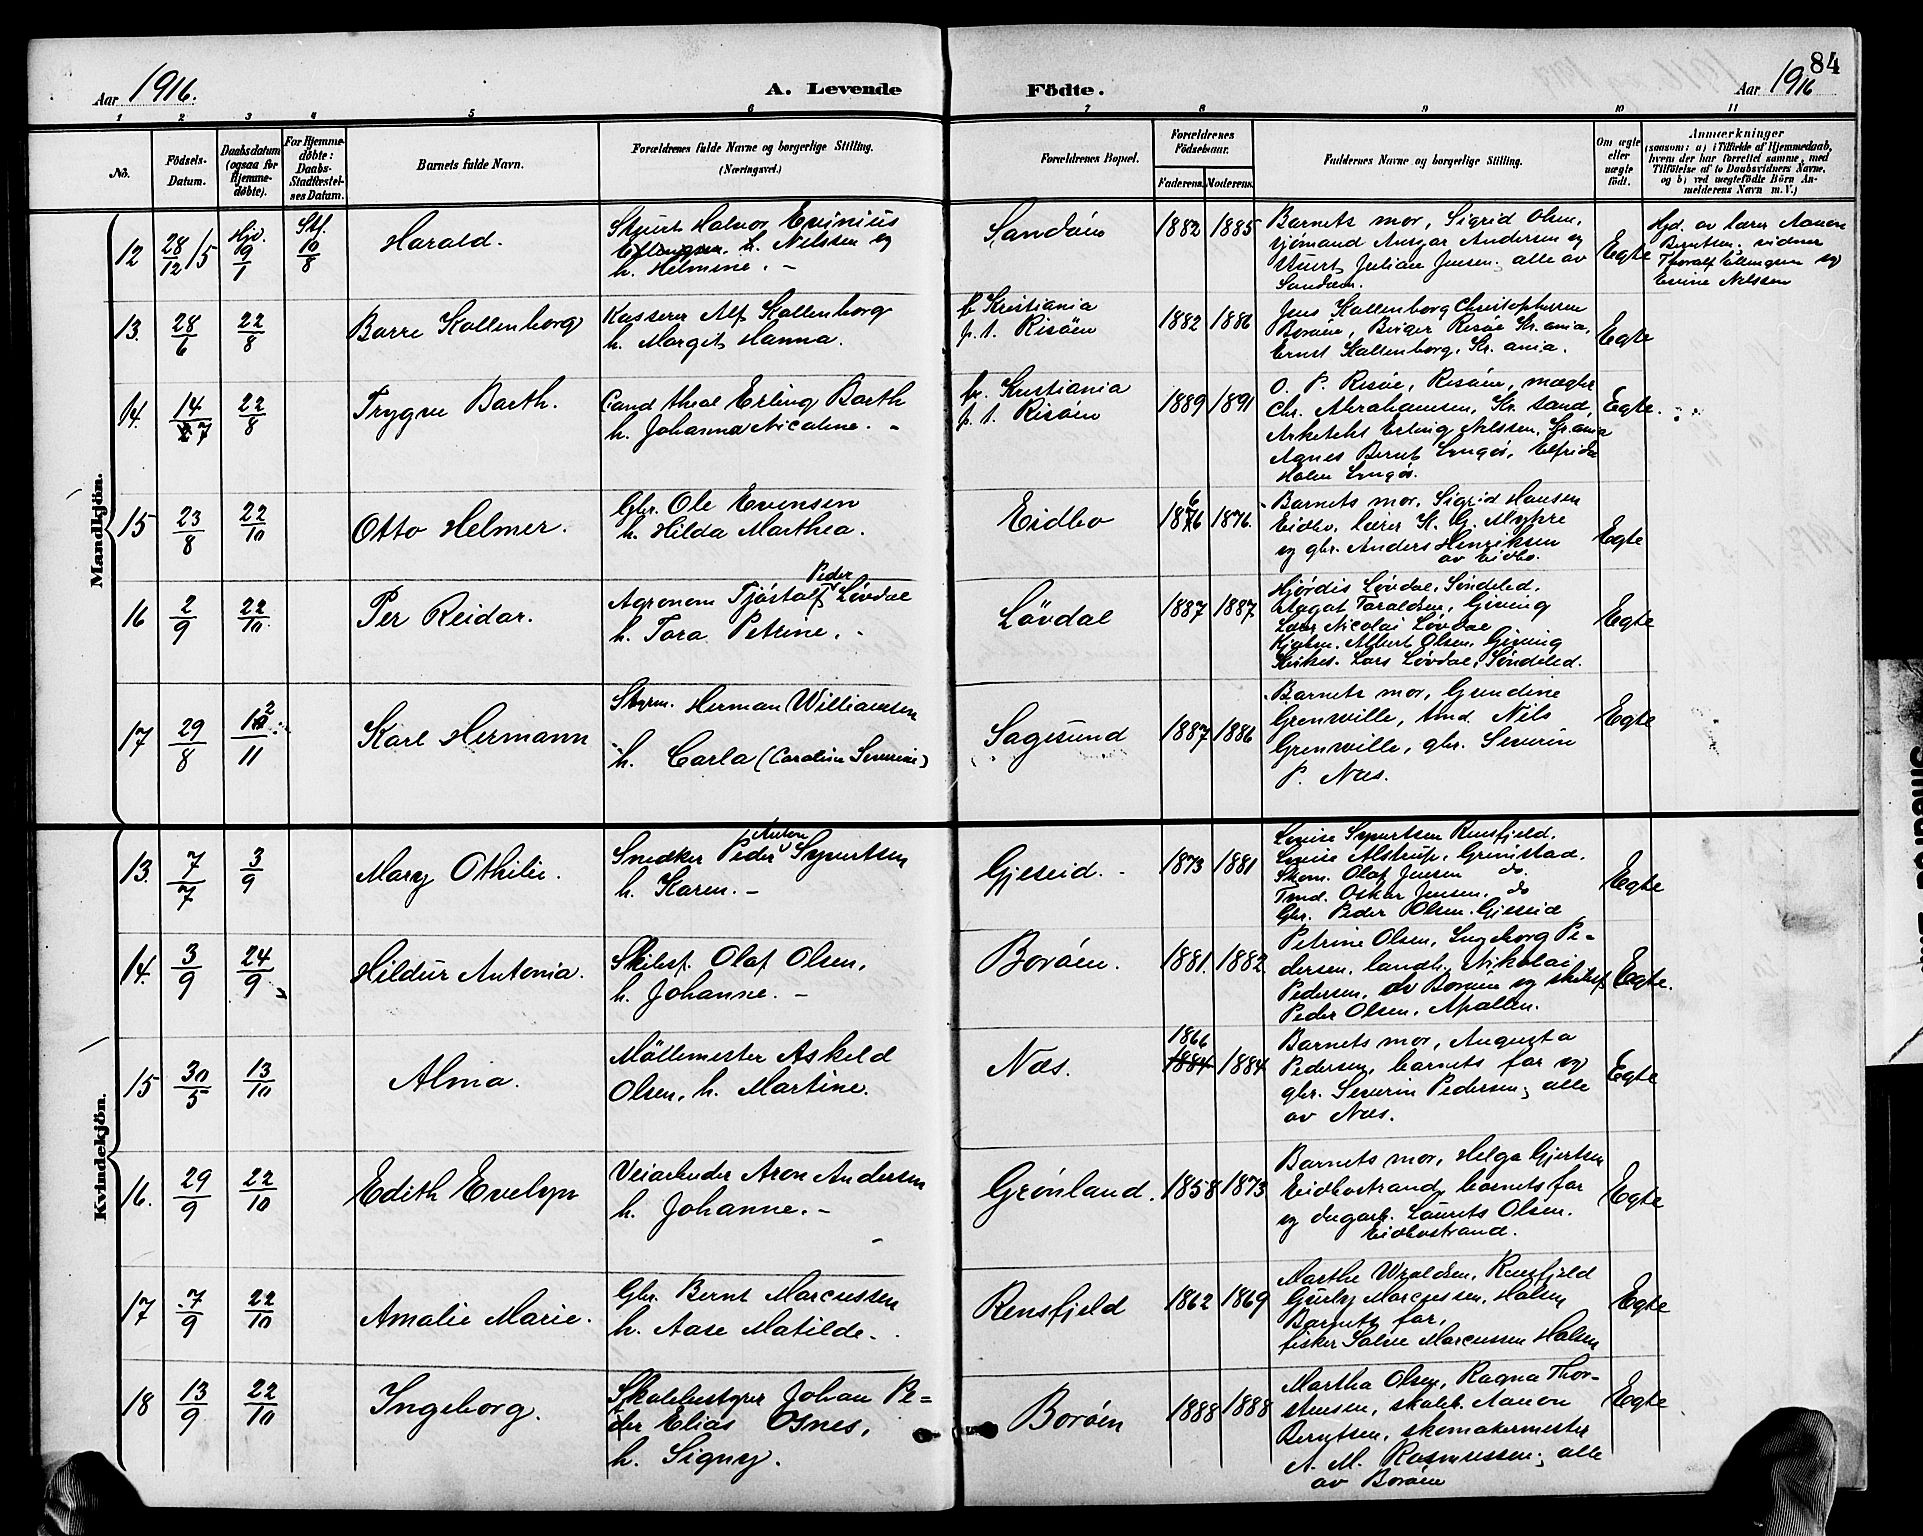 84
Aar 1916. A. Levende Fødte. Aar 1916
1 2 3 4 5 6 7 8 9 10 11
No.
Fødsels-Datum.
Daabsdatum (ogsaa for Hjemmedøbte).
For Hjemmedøbte: Daabs-Stadfæstelses Datum.
Barnets fulde Navn.
Forældrenes fulde Navne og borgerlige Stilling. (Næringsvei.)
Forældrenes Bopæl.
Forældrenes Fødselsaar.
Faderens. Moderens.
Faddernes Navne og borgerlige Stilling.
Om ægte eller uægte født.
Anmærkninger
(saasom: a) i Tilfælde af Hjemmedaab, hvem der har forrettet samme, med Tilføielse af to Daabsvidners Navne, og b) ved uægtefødte Børn Anmelderens Navn m. V.)
Mandkjön.
12 28/12 15 Hjd. 19/1 Stf. 10/8 Harald.
Halvor Evinius
Ellingsen. h. Nilssen og
h. Helmine. -
Sandøen 1882 1885
Barnets mor, Sigrid Olsen,
sjømand Ansgar Andersen og
Julian Jensen. alle av
Sandøen.
Egte
Hjd. av lærer Aanon
Berntsen. vidner
Thoralf Ellingsen og
Evine Nilssen
13. 28/6 22/8 Barre Kallenborg
Kasserer Alf Kallenborg
h. Margit Hanna.
br Kristiania
p. t. Risøen
1882 1886
Jens Kallenborg Christophersen
Borøen, Birger Risøe Kr. ania,
Ernst Kallenborg, Kr. ania.
Egte
14. 14/7 22/8 Trygve Barth.
Cand theol Erling Barth
h. Johanna Nicoline. -
br. Kristiania
p. t. Risøen
1889 1891
O. P. Risøe, Risøen, mægler
Chr. Abrahamsen, Kr. sand,
Arkitekt Erling Nilssen, Kr. ania
Agnes Bernt Lyngør, Elfrida
Holm Lyngør.
Egte.
15 23/8 22/10 Otto Helmer.
Gbr. Ole Evensen
h. Hilda Marthea.
Eidbo 1876 1876.
Barnets mor, Sigrid Hansen
Eidbo, lærer K. G. Myhre
og gbr. Anders Henriksen
av Eidbo.
Egte
16 2/9 22/10. Per Reidar.
Peder
Agronom Tjøstolf Løvdal
h. Tora Petrine. -
Løvdal 1887 1887
Hjørdis Løvdal, Søndeled.
Aagot Taraldsen, Gjeving
Lærer Nicolai Løvdal
Albert Olsen, Gjeving
Lars Løvdal, Søndeled.
Egte
17 29/8 12/11 Karl Hermann
Styrm. Herman Williamsen
h. Carla (Caroline Severine)
Sagesund 1887 1886
Barnets mor, Gundine
Grenville, tmd. Nils
Grenville, gbr. Severin
P. Næs.
Egte
Kvindekjön.
13. 7/7 3/9 Mary Othilie.
Anton
Snedker Peder Syvertsen
h. Karen. -
Gjeseid. - 1873 1881
Lovise Syvertsen Rensfjeld.
Lovise Alstrup, Grimstad.
Skom. Olaf Jensen do.
Tmd. Oskar Jensen. do
Gbr. Peder Olsen. Gjeseid
Egte
14. 3/9 24/9 Hildur Antonia.
Skibsf. Olaf Olsen,
h. Johanne. -
Borøen. 1881. 1882
Petrine Olsen, Ingeborg Pe=
dersen, landh. Nikolai
Pedersen, av Borøen og skibsf
Peder Olsen, Apallen.
Egte.
15 30/5 13/10 Alma.
Møllemester Askild
Olsen, h. Martine.
Næs. 1866 1884 1884
Barnets mor, Augusta
Pedersen, barnets far og
gbr. Severin Pedersen, alle
av Næs.
Egte
16. 29/9 22/10 Edith Evelyn
Veiarbeider Aron Andersen
h. Johanne. -
Grønland. 1858 1873
Barnets mor, Helga Gjertsen
Eidbostrand, barnets far
og dagarb. Laurits Olsen.
Eidbostrand.
Egte
17 7/9 22/10 Amalie Marie.
Gbr. Bernt Marcussen
h. Aase Matilde. -
Rensfjeld 1862 1869
Marthe Wroldsen, Rensfjeld
Gurly Marcussen, Holsen
Barnets far,
fisker Salve Marcussen Holsen
Egte
18 13/9 22/10 Ingeborg.
Skolebestyrer Johan Pe=
der Elias Osnes,
h. Signy.
Borøen 1888 1888
Martha Olsen, Ragna Thor-
stensen, skoleb. Aanon
Berntsen, skomakermester
A. M. Rasmussen, alle
av Borøen
Egte